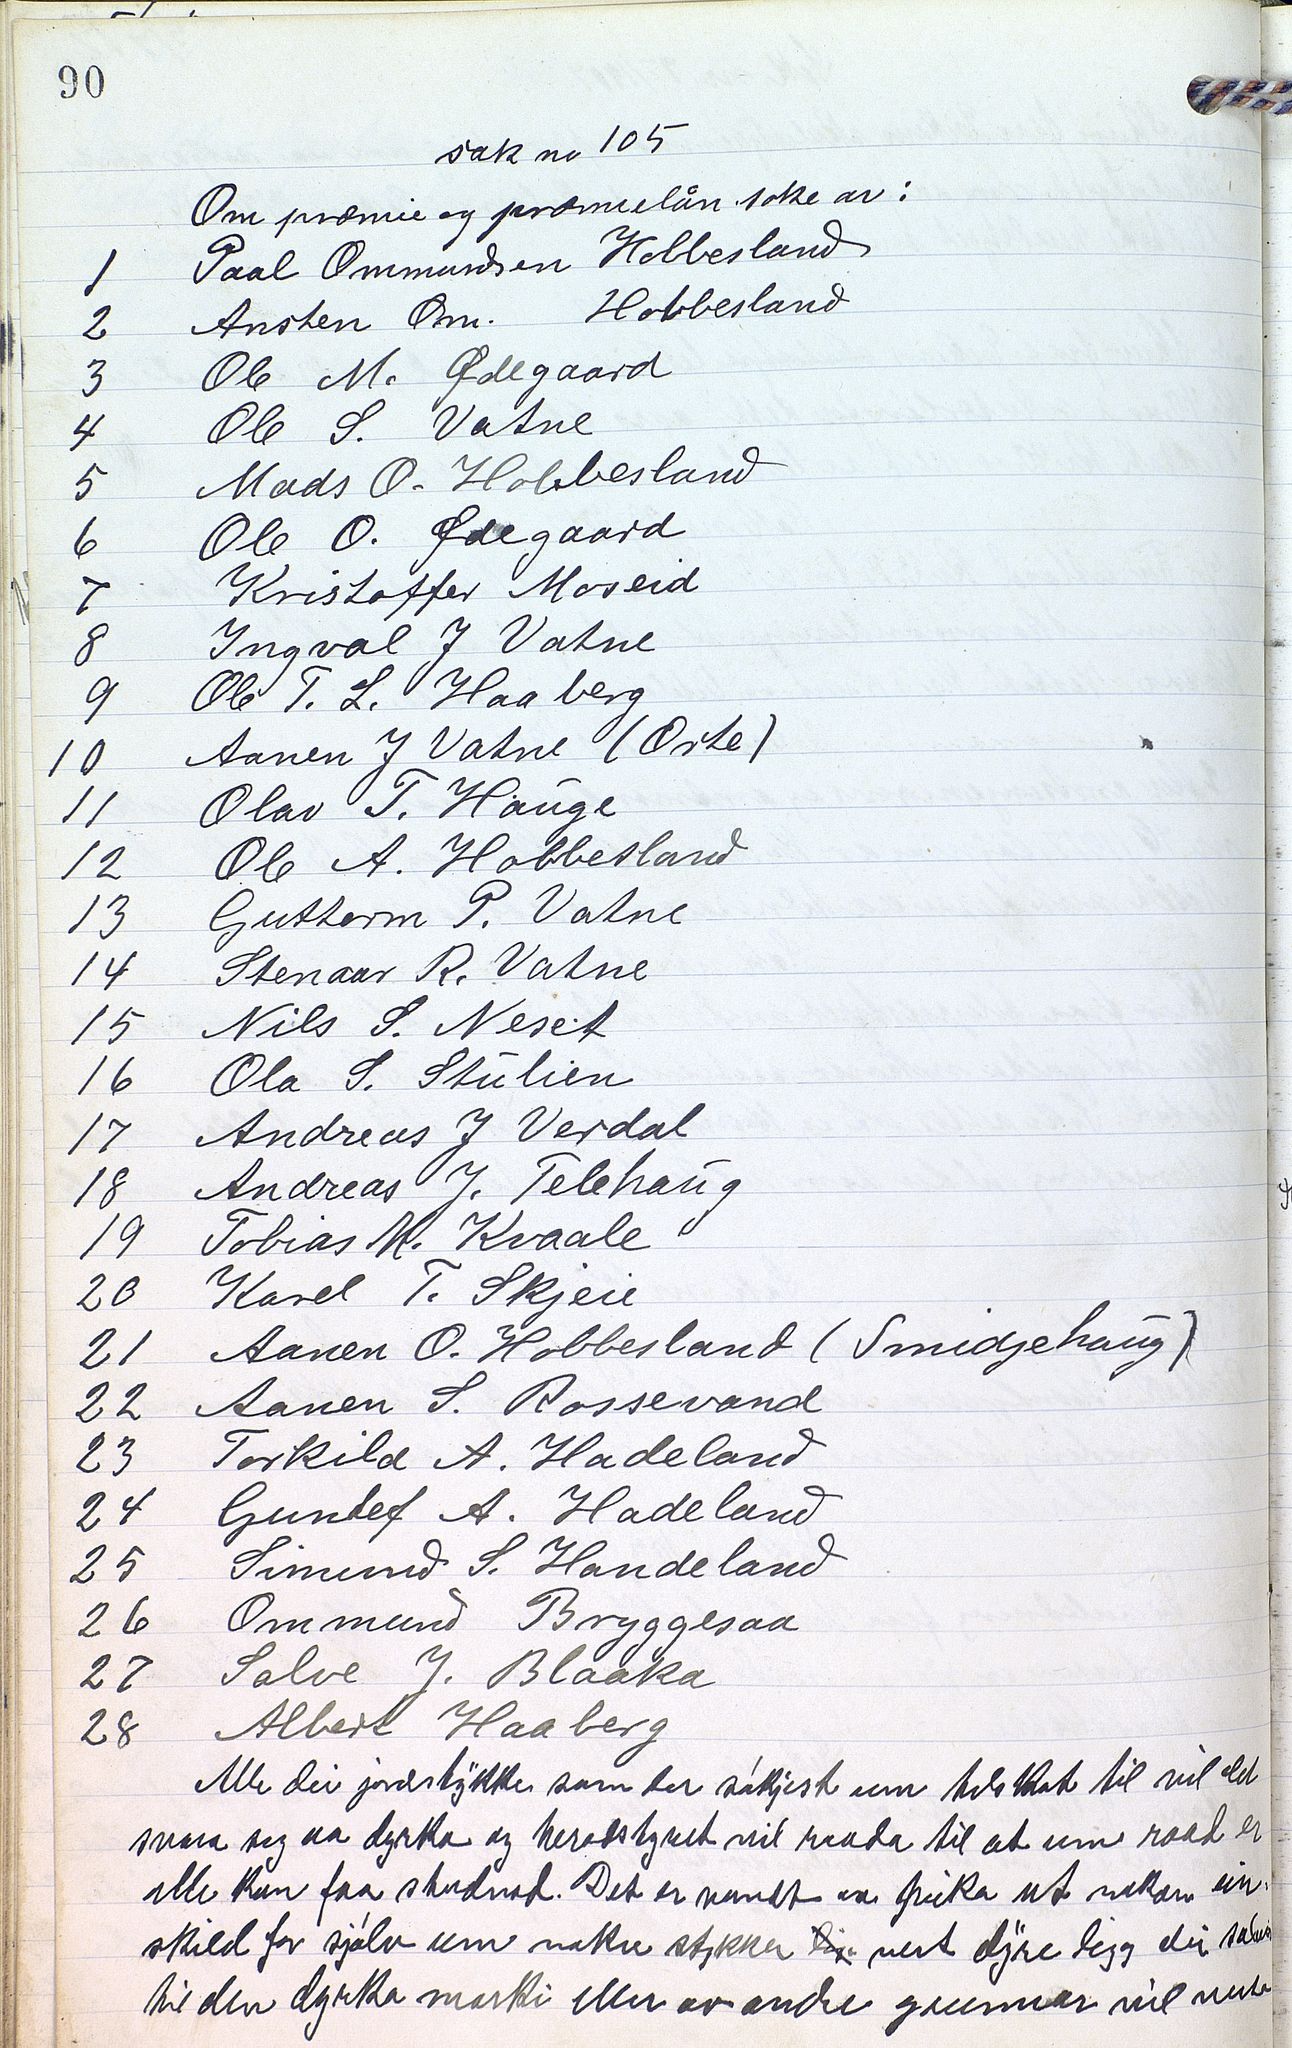 90
sak no 105
Om præmie og præmielån søke av:
1 Paal Ommundsen Hobbesland
2 Ansten Om. Hobbesland
3 Ole M. Ødegaard
4 Ole S. Vatne
5 Mads O. Hobbesland
6 Ole O. Ødegaard
7 Kristoffer Moseid
8 Ingval J Vatne
9 Ole T. L. Haaberg
10 Aanen J Vatne (Orte)
11 Olav T. Hauge
12 Ole A. Hobbesland
13 Guttorm P. Vatne
14 Stenaar R. Vatne
15 Nils S. Neset
16 Ola S. Stulien
17 Andreas J Verdal
18 Andreas J. Telehaug
19 Tobias M. Kvaale
20 Karel T. Skjeie
21 Aanen O. Hobbesland (Smidjehaug)
22 Aanen S. Rossevand
23 Torkild A. Hadeland
24 Gunlef A. Hadeland
25 Simund S. Handeland
26 Ommund Bryggesaa
27 Salve J. Blaaka
28 Albert Haaberg
Alle dei jordstykke som der søkjest um tilskot til vil
svara seg aa dyrka og heradstyret vil raada til at um raad er
alle kan faa studnad. Det er vandt aa peika ut nokon ein-
skild for sjølv um nokre stykker vert dyre ligg dei
til den dyrka marki eller av andre grunnar vil verta